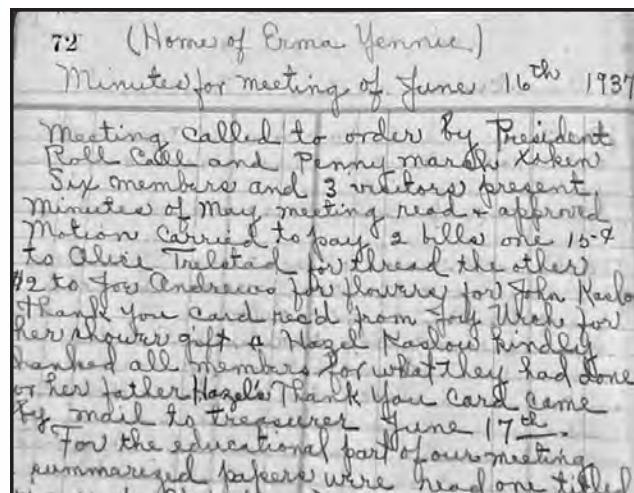 72 (Home of Erma Yennie)
Minutes for meeting of June 16th 1937
Meeting called to order by President
Roll Call and Penny march taken
Six members and 3 visitors present.
Minutes of May meeting read & approved
Motion carried to pay 2 bills one 15¢
to Alice Trelstad for thread the other
$2 to Joe Andrews for flowers for John Kaslo
Thank you card read from Joy for
her shower gift & Hazel Kaslow kindly
hanked all members for what they had done
or her father Hazel's Thank You card came
by mail to treasurer June 17th
For the educational part of our meeting
summarized papers were read one titled